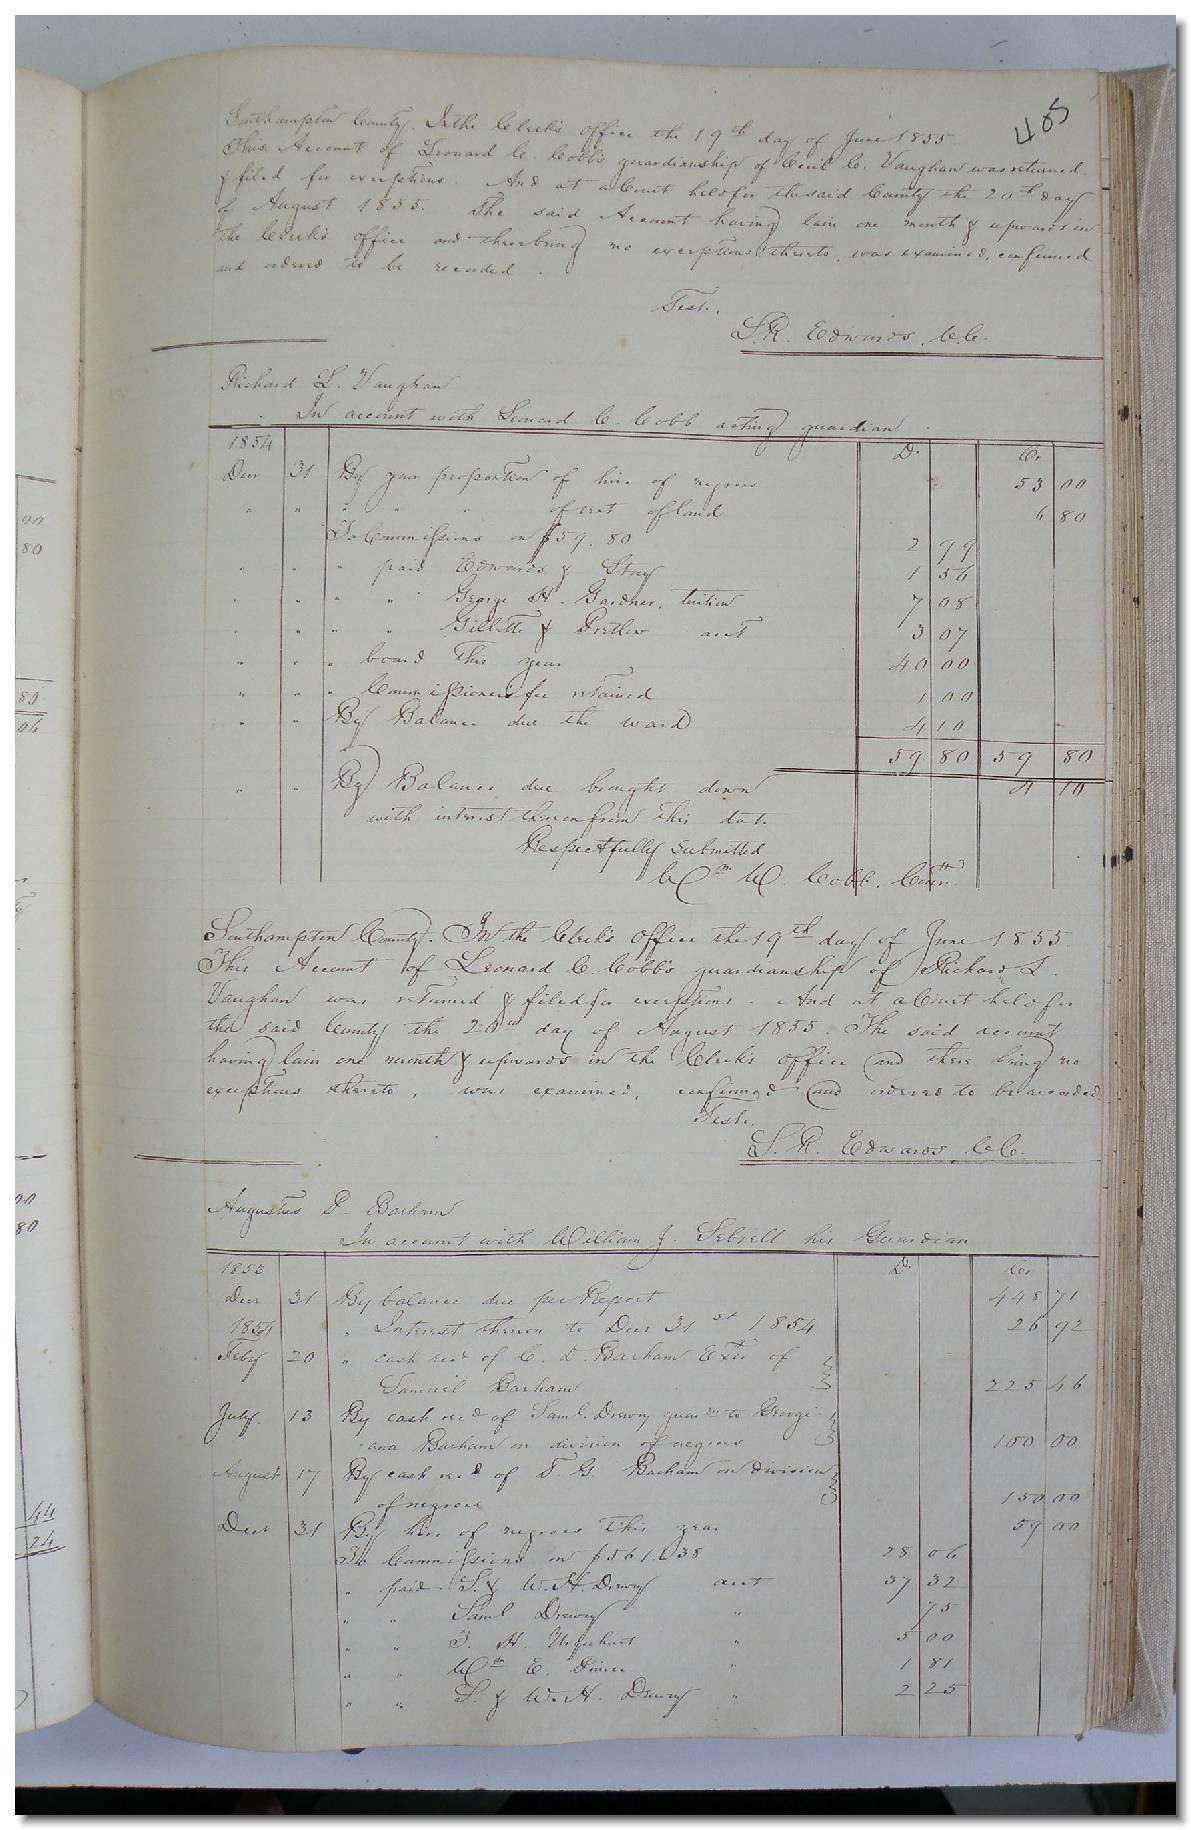 405
Southampton County. In the Clerk's office the 19th day of June 1855
This Account of Leonard C. Cobb's guardianship of Cecil C. Vaughan was returned
& filed for exceptions. And at a Court held for the said County the 20th day
of August 1855. The said Account having lain one month & upwards in
the Clerk's office and there being no exceptions thereto, was examined, confirmed
and ordered to be recorded.
Teste,
L. R. Edwards, C.C.
Richard L. Vaughan
In account with Leonard C. Cobb acting guardian
1854 Dr. Cr.
Decr 31 By your proportion of hire of negroes 53 00
" " " " " of rent of land 6 80
To Commissions on $59.80 2 99
" " " paid Edwards & Stay 1 56
" " " " George H. Gardner, tuition 7 08
" " " " Gillette & Pretlow acct 3 07
" " " board this year 40 00
" " " Commissioners fee retained 1 00
" " By Balance due the ward 4 10
59 80 59 80
" " By Balance due brought down 4 10
with interest thereon from this date
Respectfully Submitted
Wm W. Cobb, Comr.
Southampton County. In the Clerk's Office the 19th day of June 1855.
This Account of Leonard C. Cobb's guardianship of Richard L.
Vaughan was returned & filed for exceptions. And at a Court held for
the said County the 20th day of August 1855. The said account
having lain one month & upwards in the Clerk's office and there being no
exceptions thereto, was examined, confirmed and ordered to be recorded.
Teste,
L. R. Edwards, C.C.
Augustus P. Barham
In account with William J. Sebrell his Guardian
1853 Dr. Cr.
Decr 31 By balance due per Report 448 71
1854 " Interest thereon to Decr 31st 1854 26 92
Feby 20 " cash recd of C. D. Barham Extr of
Samuel Barham 225 46
July. 13 By cash recd of Saml. Drewry guardn to Georgi-
ana Barham on division of negroes 100 00
August 17 By cash recd of T. G. Barham on division
of negroes 150 00
Decr 31 By hire of negroes this year 59 00
To Commissions on $561.38 28 06
" paid S. & W. H. Drewry acct 37 32
" " Saml Drewry " 75
" " Urquhart " 5 00
" " Wm E. " 1 81
" " S. & W. H. Drewry " 2 25
00
80
89
06
00
80
44
24